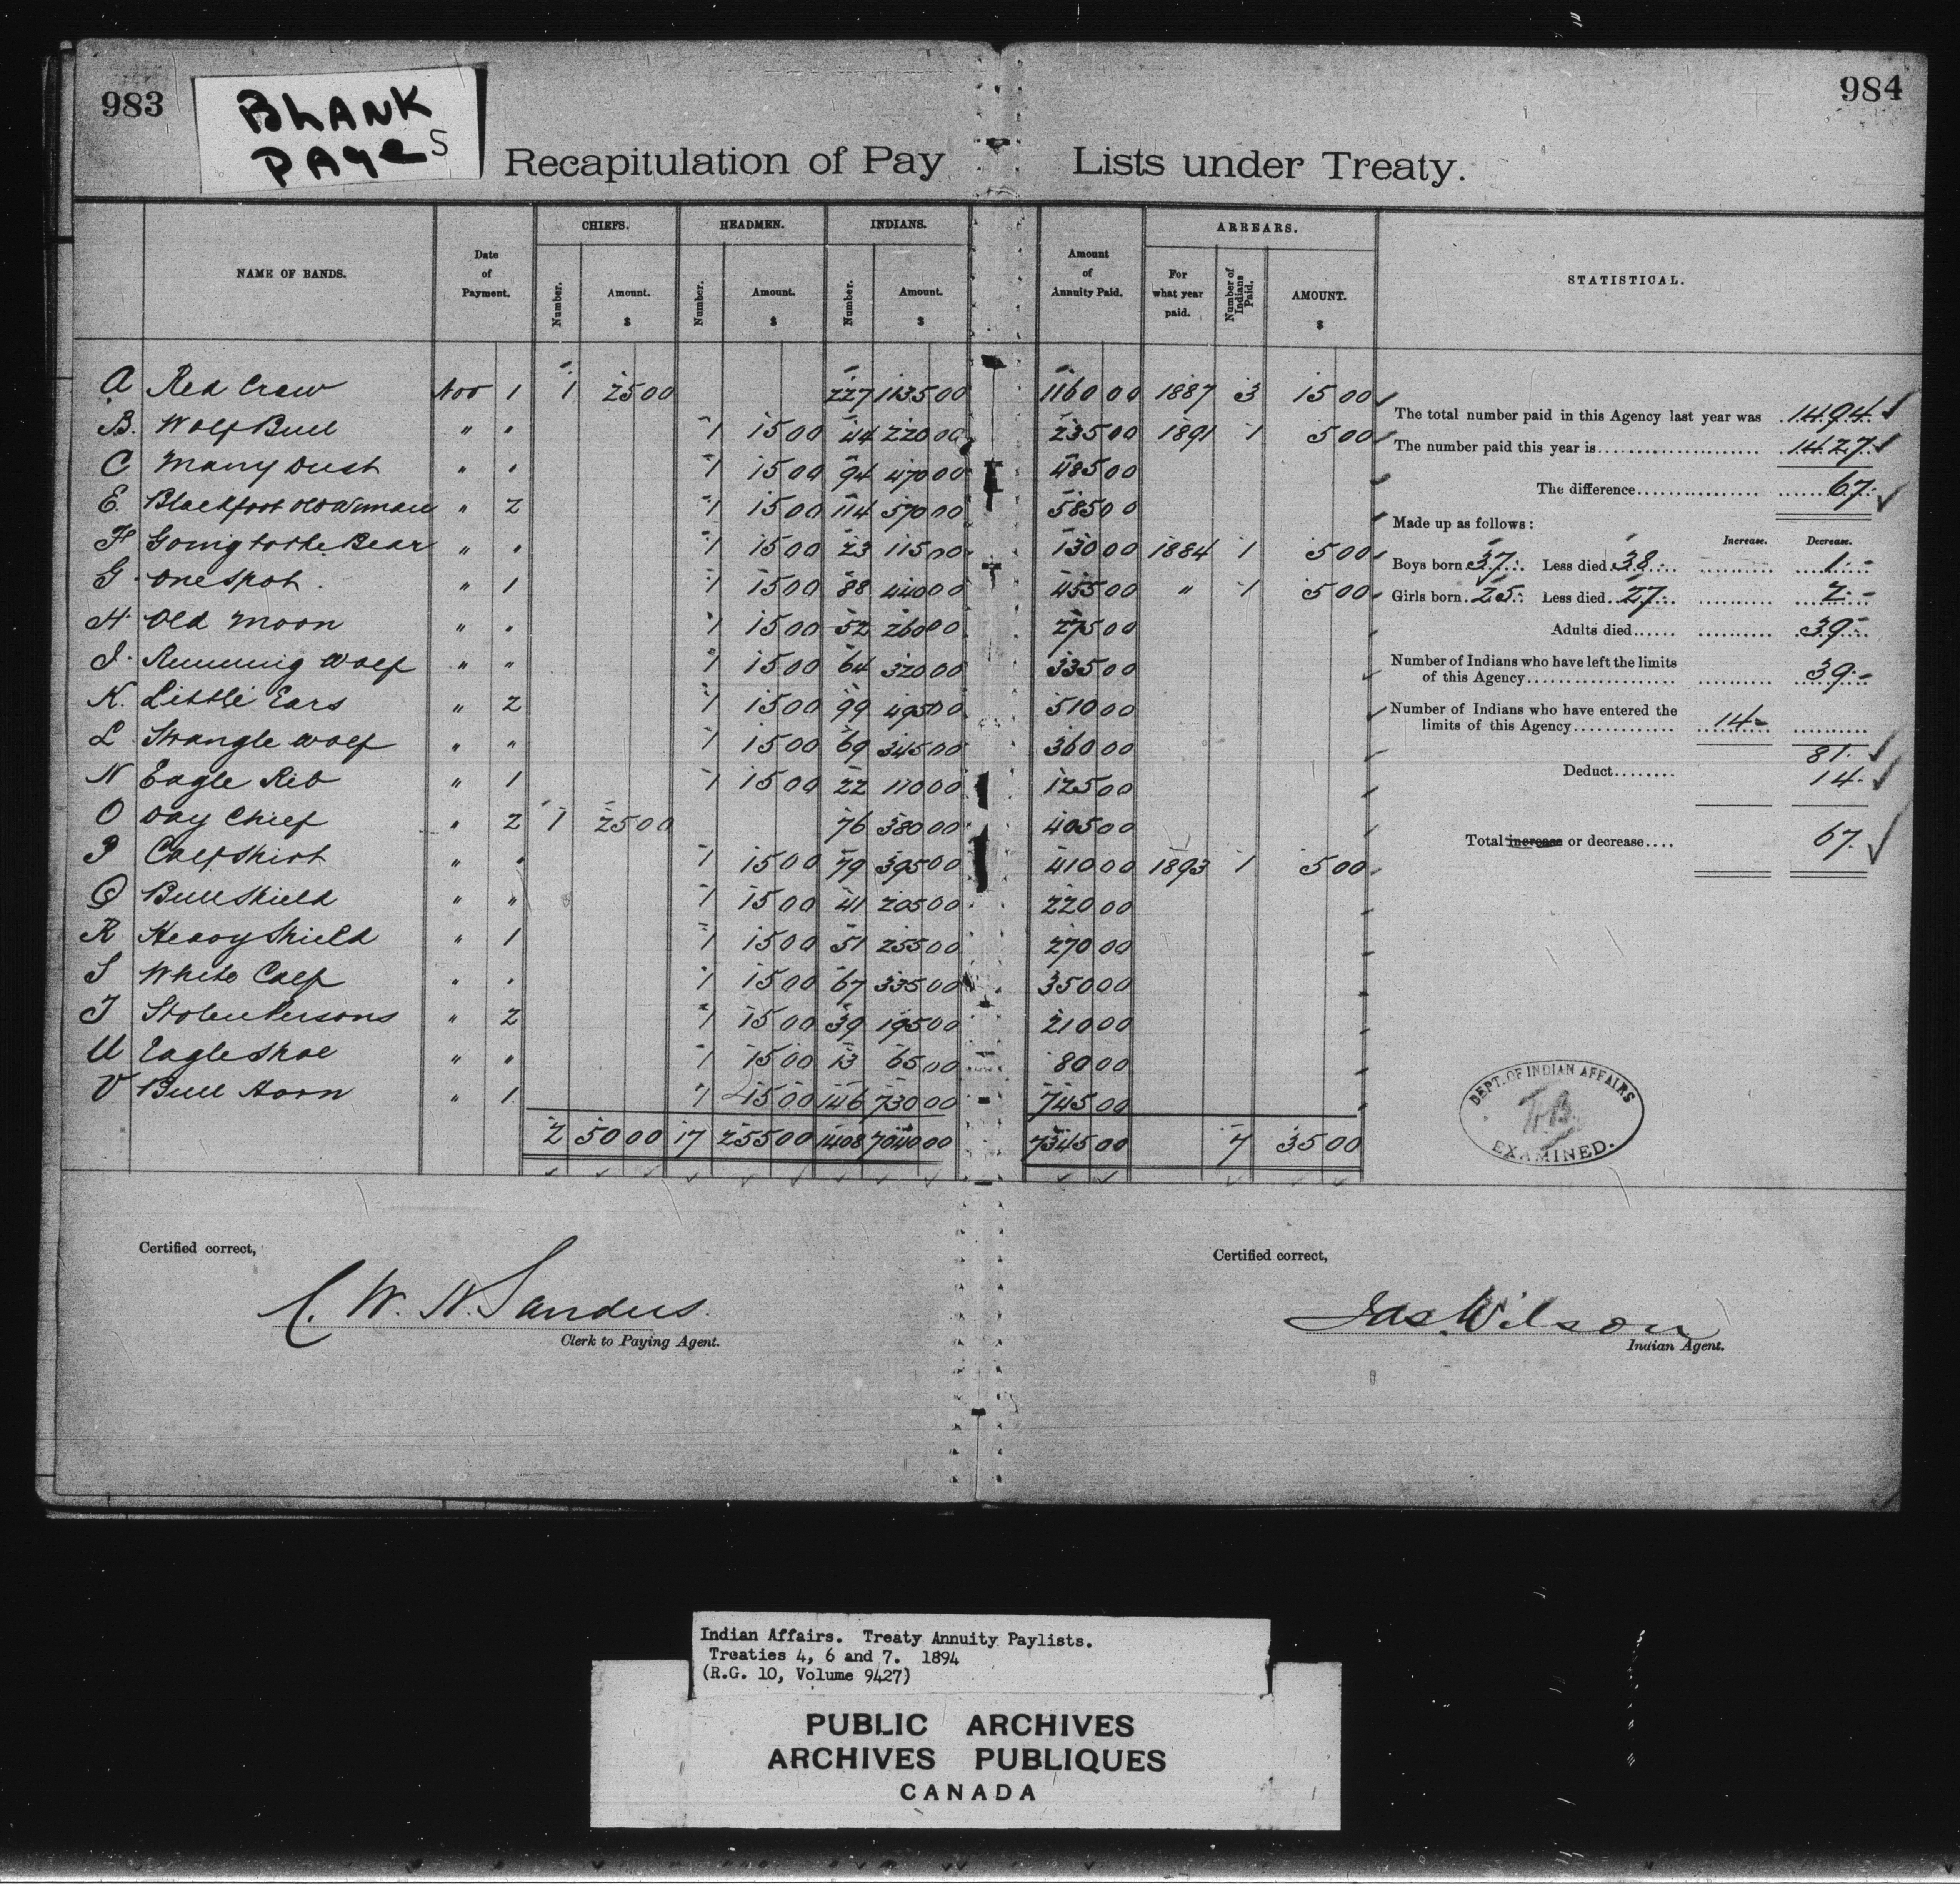 983
BLANK
PAGES
984
Recapitulation of Pay Lists under Treaty.
NAME OF BANDS. Date of Payment. CHIEFS. HEADMEN. INDIANS. Amount of Annuity Paid. ARREARS. STATISTICAL.
Number. Amount. $ Number. Amount. $ Number. Amount. $ For what year paid. Number of Indians Paid. AMOUNT. $
A Red Crow Nov 1 1 25 00 227 1135 00 1160 00 1887 3 15 00
B. Wolf Bull " " 1 15 00 44 220 00 235 00 1891 1 5 00
C Many Dust " " 1 15 00 94 470 00 485 00
E. Blackfoot Old Woman " 2 1 15 00 114 570 00 585 00
F Going to the Bear " " 1 15 00 23 115 00 130 00 1884 1 5 00
G One Spot " 1 1 15 00 88 440 00 455 00 " 1 5 00
H Old Moon " " 1 15 00 52 260 00 275 00
J. Running Wolf " " 1 15 00 64 320 00 335 00
K. Little Ears " 2 1 15 00 99 495 00 510 00
L Strangle Wolf " " 1 15 00 69 345 00 360 00
N Eagle Rib " 1 1 15 00 22 110 00 125 00
O Day Chief " 2 1 25 00 76 380 00 405 00
P Calf Shirt " " 1 15 00 79 395 00 410 00 1893 1 5 00
Q Bull Shield " " 1 15 00 41 205 00 220 00
R Heavy Shield " 1 1 15 00 51 255 00 270 00
S White Calf " " 1 15 00 67 335 00 350 00
T Stolen Persons " 2 1 15 00 39 195 00 210 00
U Eagle Shoe " " 1 15 00 13 65 00 80 00
V Bull Horn " 1 1 15 00 146 730 00 745 00
2 50 00 17 255 00 1408 7040 00 7345 00 7 35 00
The total number paid in this Agency last year was 1494
The number paid this year is 1427
The difference 67
Made up as follows:
Increase. Decrease.
Boys born 37 Less died 38 1
Girls born 25 Less died 27 2
Adults died 39
Number of Indians who have left the limits
of this Agency 39
Number of Indians who have entered the
limits of this Agency 14
81
Deduct 14
Total increase or decrease 67
DEPT. OF INDIAN AFFAIRS
EXAMINED.
Certified correct,
C. W. H. Sanders.
Clerk to Paying Agent.
Certified correct,
Jas. Wilson
Indian Agent.
Indian Affairs. Treaty Annuity Paylists.
Treaties 4, 6 and 7. 1894
(R.G. 10, Volume 9427)
PUBLIC ARCHIVES
ARCHIVES PUBLIQUES
CANADA